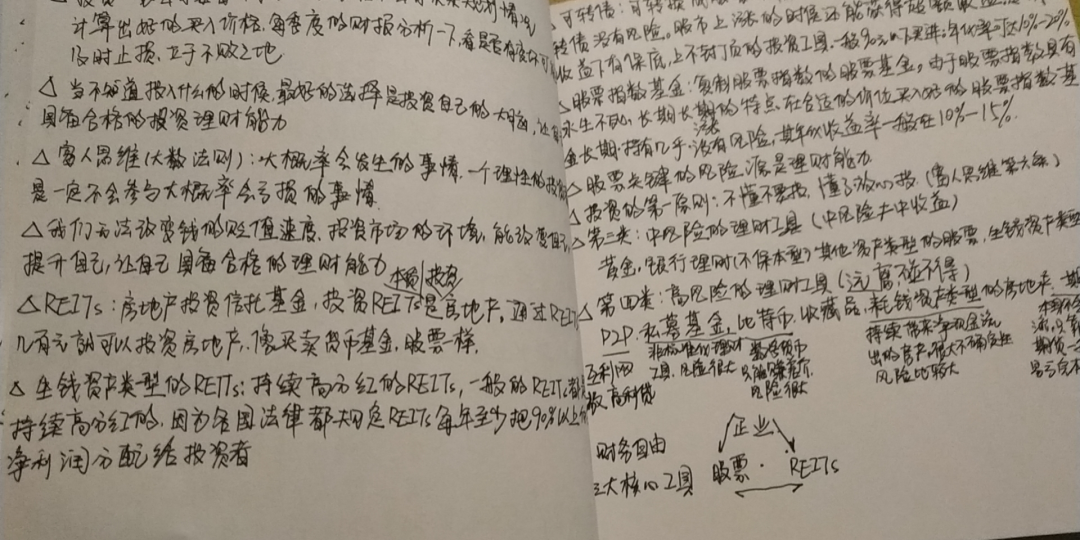 计算出好的买入价格,每季度的财报分析一下,看是否有
及时止损,立于不败之地
△ 当不知道投入什么的时候,最好的选择是投资自己的大脑,让
具备合格的投资理财能力
△ 富人思维(大数法则):大概率会发生的事情,一个理性的投资
是一定不会参与大概率会亏损的事情.
△ 我们无法改变钱的贬值速度,投资市场的环境,能改变自己
提升自己,让自己具备合格的理财能力
本质 投资
△ REITs:房地产投资信托基金,投资REITs是房地产,通过REITs
几百元就可以投资房地产.像买卖货币基金,股票一样.
△ 生钱资产类型的REITs:持续高分红的REITs,一般的REITs都
持续高分红的,因为各国法律都规定REITs每年至少把90%以上
净利润分配给投资者
可转债:可转换
转债没有风险。股市上涨的时候还能获得
收益下有保底,上不封顶的投资工具.一般90元以下买进;年化率可达10%~20%
△ 股票指数基金:复制股票指数的股票基金,由于股票指数具有
永生不死,长期长涨的特点,在合适的价位买入好的股票指数基
金长期持有几乎没有风险,其年化收益率一般在10%-15%.
△ 股票关键的风险源是理财能力
△ 投资的第一原则:不懂不要投,懂了放心投.(富人思维第六条)
△ 第三类:中风险的理财工具(中风险+中收益)
黄金,银行理财(不保本型)其他资产类型的股票,生钱资产类型
△ 第四类:高风险的理财工具(远离,碰不得)
P2P.私募基金,比特币.收藏品,耗钱资产类型的房地产,期
互利网
放高利贷
非标准化理财
工具,风险很大
数字货币
风险很大
持续带来净现金流
出的房产,很大不确定性
风险比较大
财务自由
三大核心工具
企业
股票 · REITs